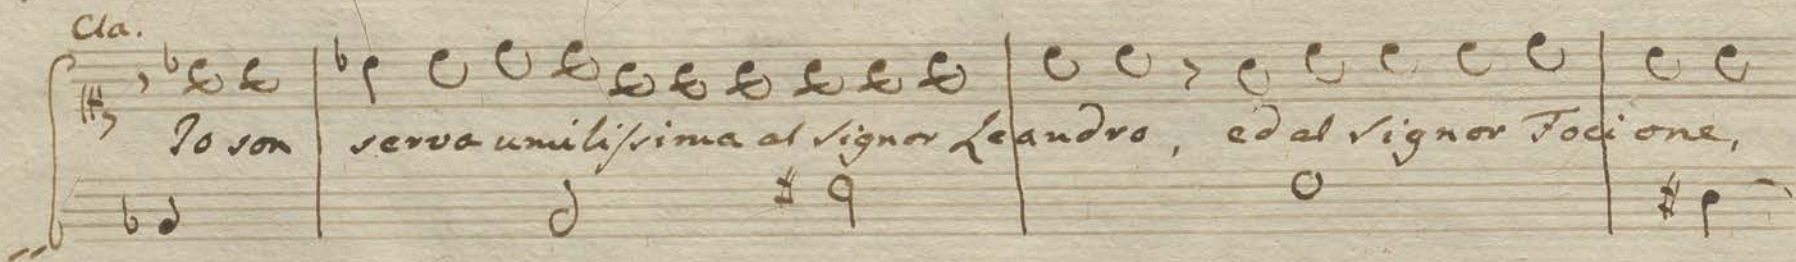 Cla.
Io son serva umiliſsima al Signor Leandro, ed al Signor Focione,